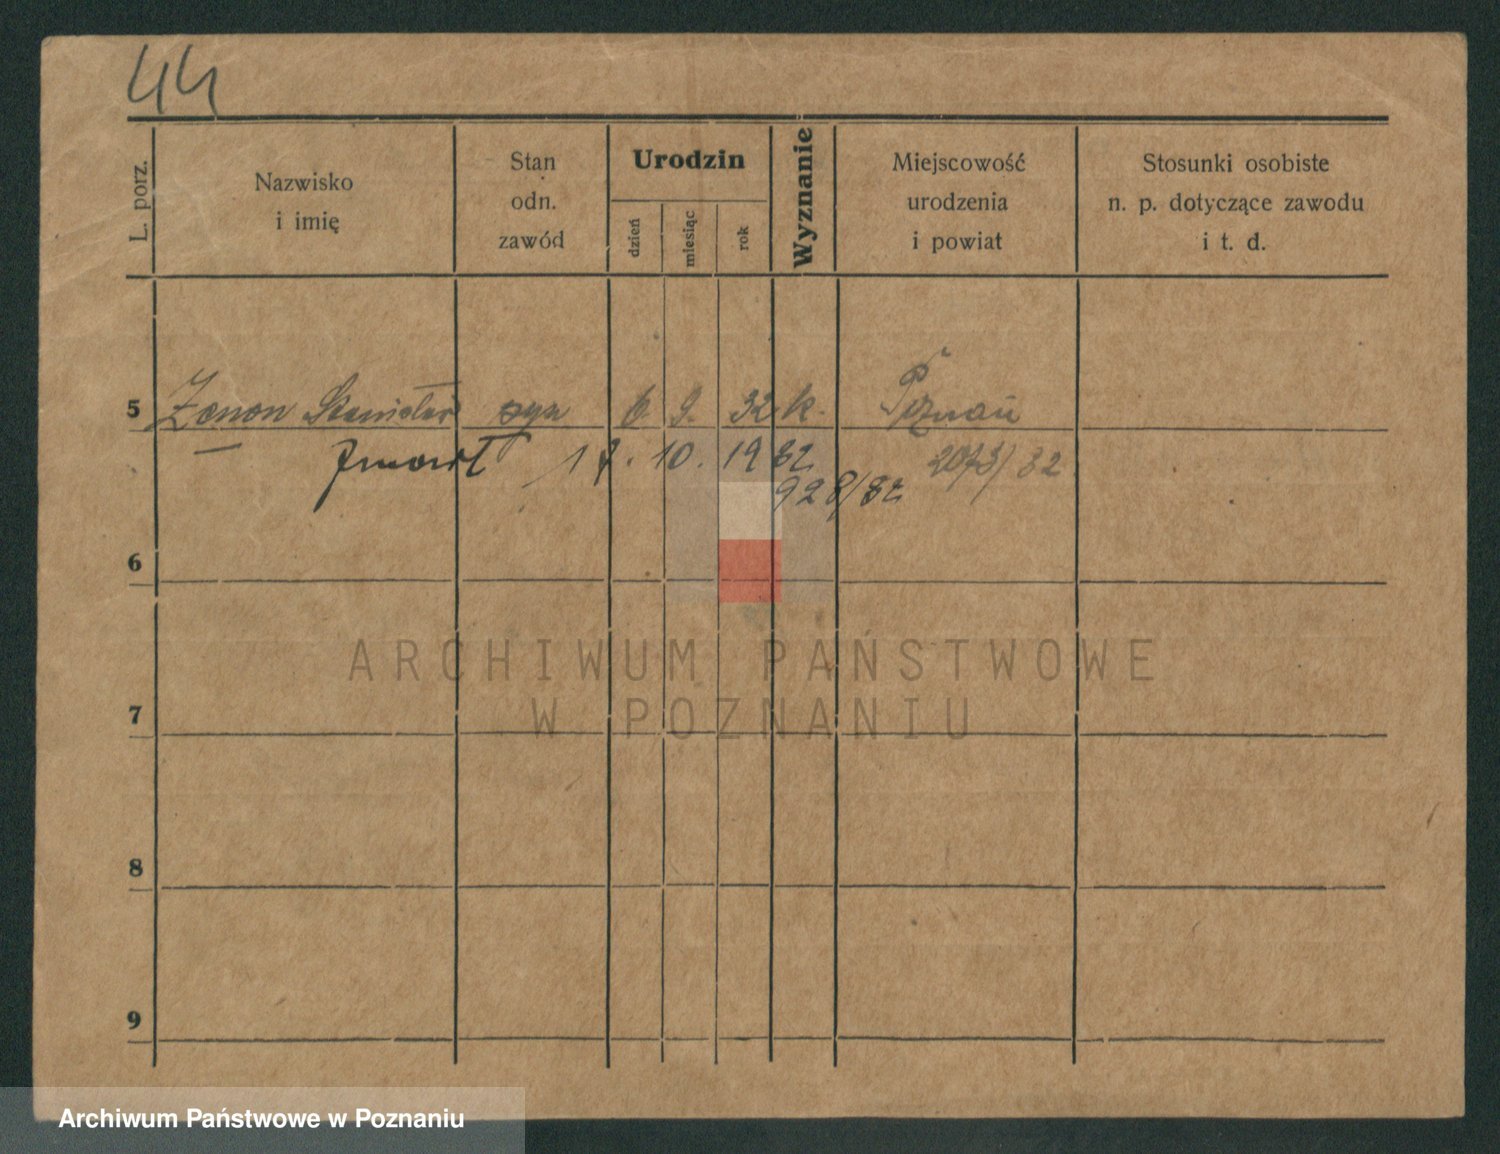 44
L. porz.
Nazwisko
i imię
Stan
odn.
zawód
Urodzin
dzień
miesiąc
rok
Wyznanie
Miejscowość
urodzenia
i powiat
Stosunki osobiste
n. p. dotyczące zawodu
i t. d.
5 Zenon Stanisław syn 6. 9. 32 k. Poznań
zmarł 17. 10. 1932 2073/32
928/32
6
7
8
9
ARCHIWUM PAŃSTWOWE
W POZNANIU
Archiwum Państwowe w Poznaniu